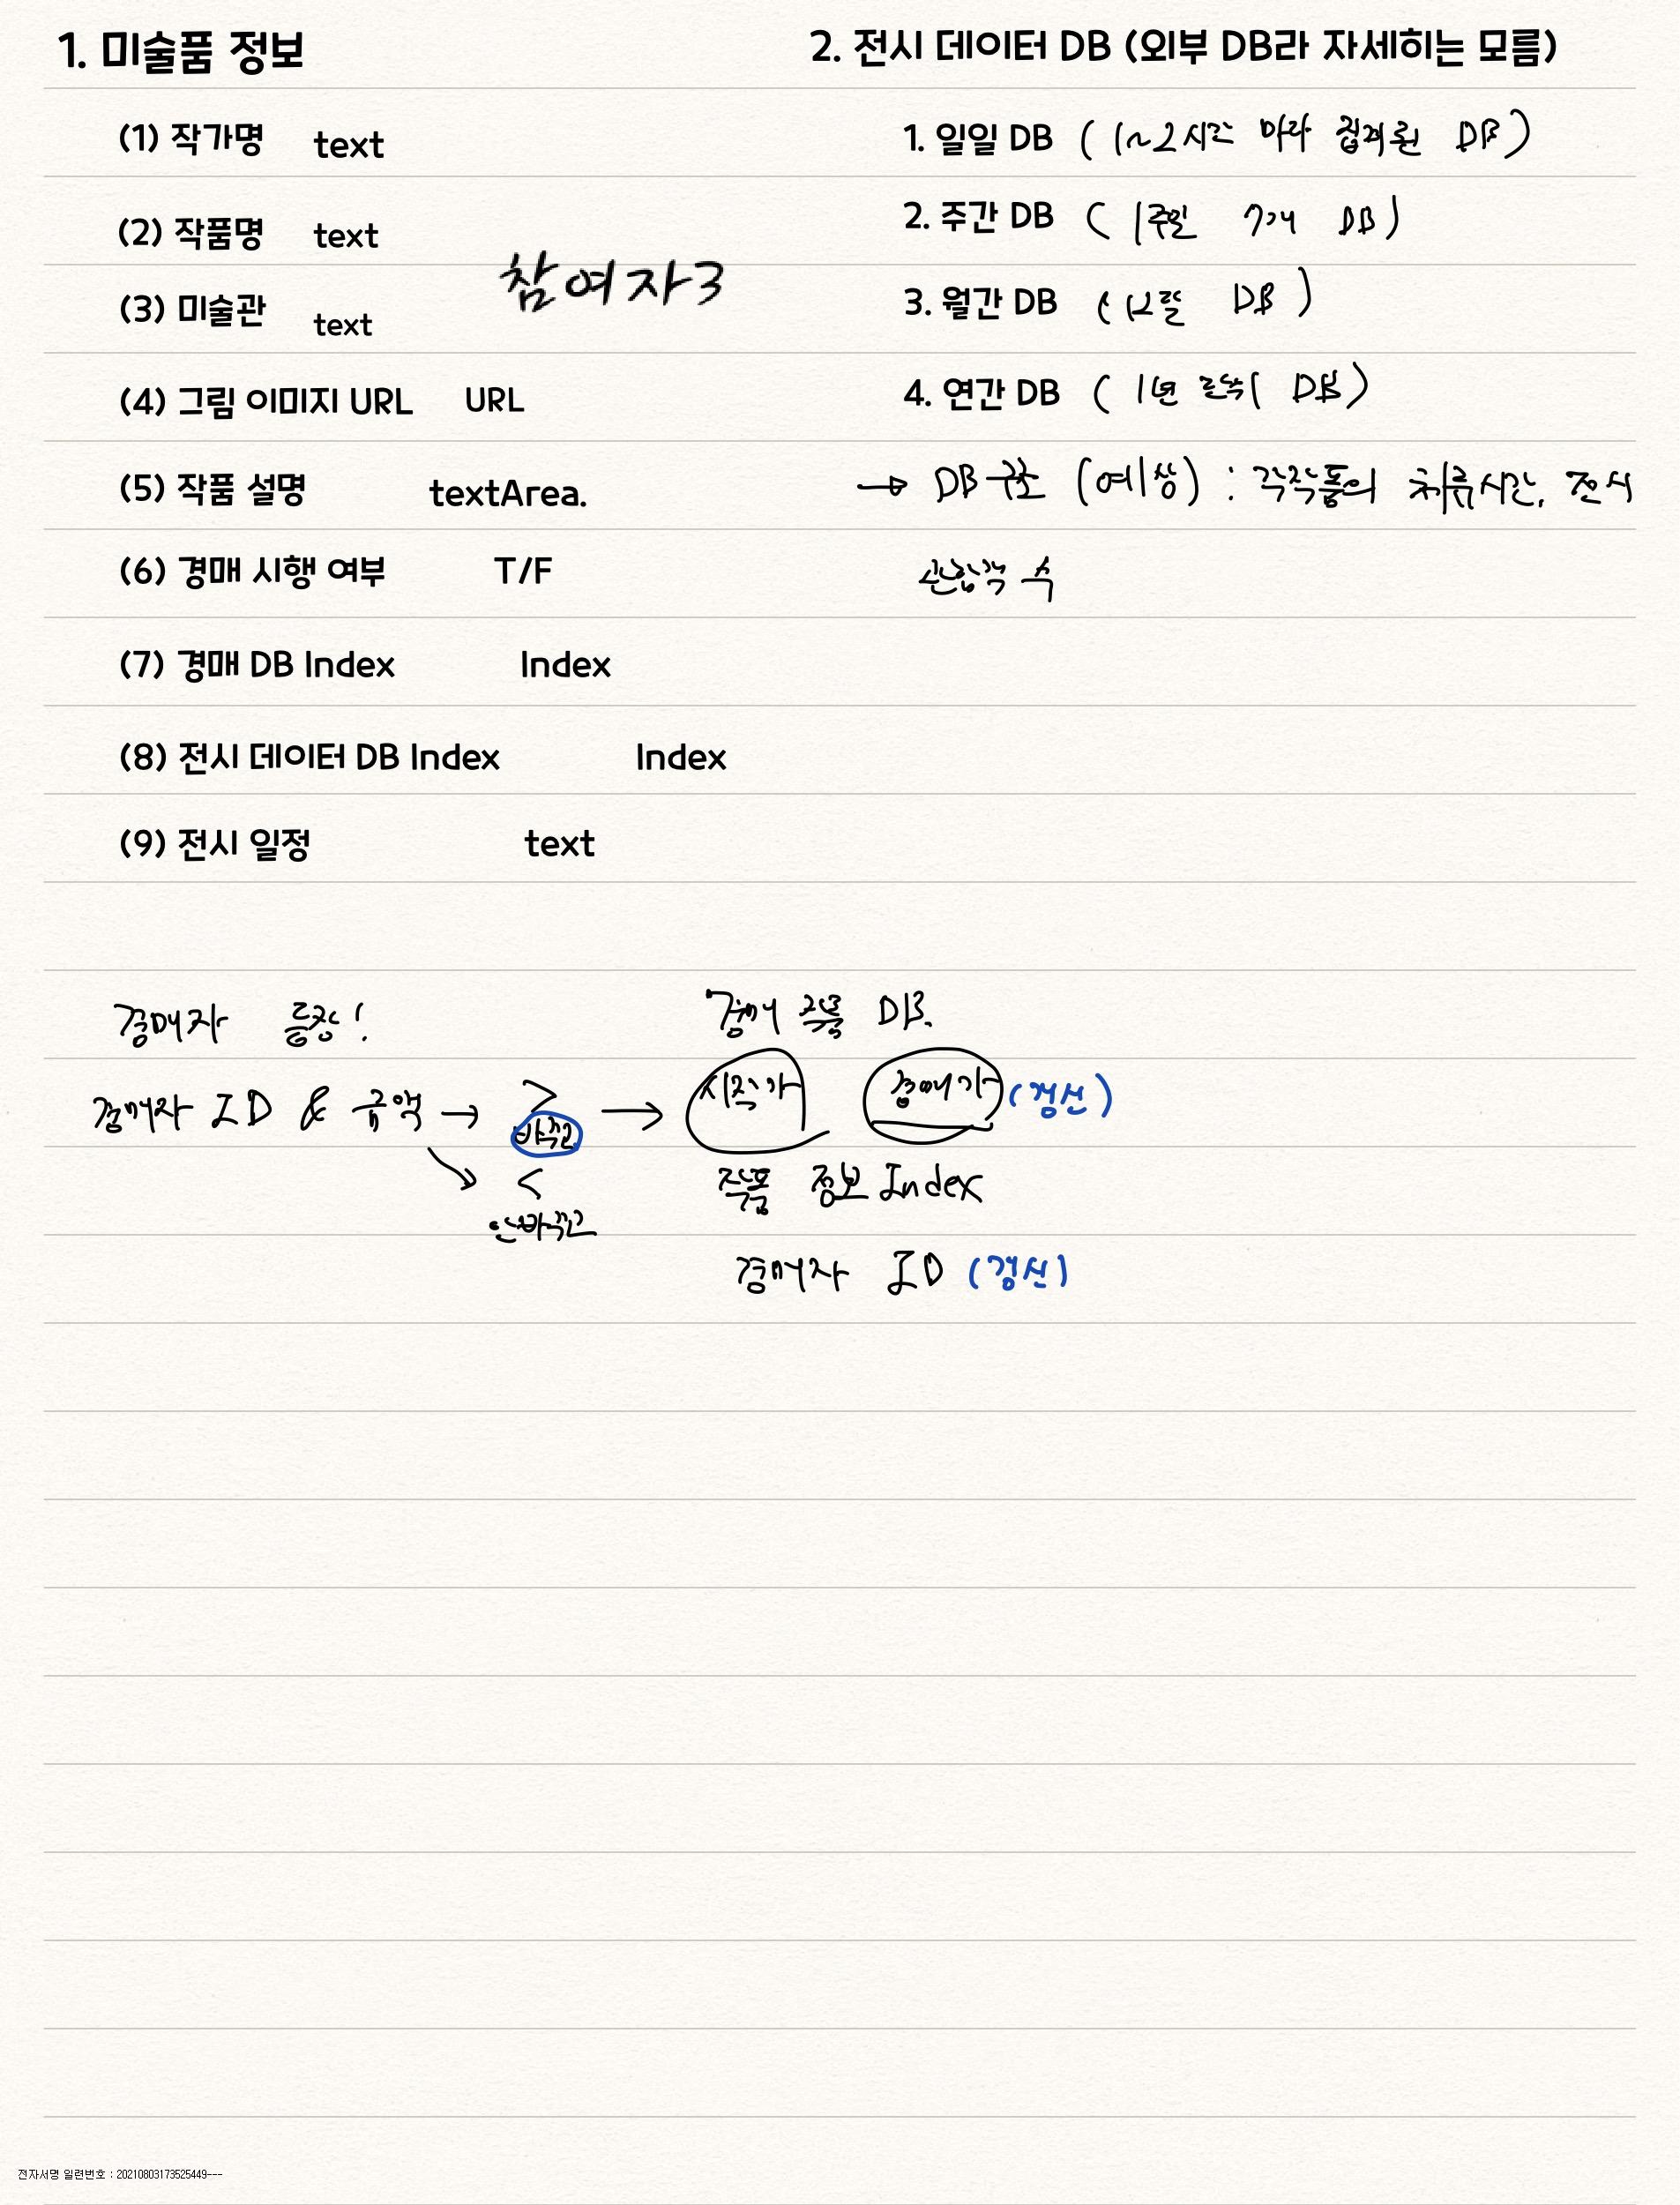 1. 미술품 정보
(1) 작가명 text
(2) 작품명 text
참여자3
(3) 미술관 text
(4) 그림 이미지 URL URL
(5) 작품 설명 textArea.
(6) 경매 시행 여부 T/F
(7) 경매 DB Index Index
(8) 전시 데이터 DB Index Index
(9) 전시 일정 text
2. 전시 데이터 DB (외부 DB라 자세히는 모름)
1. 일일 DB (1~2시간 마다 집계된 DB)
2. 주간 DB (1주일 7개 DB)
3. 월간 DB (12월 DB)
4. 연간 DB (1년 DB)
→ DB구조 (예상) : 각작품의 체류시간, 전시
관람객 수
경매자 등장!
경매자 ID & 금액 → >
바뀐
<
안바뀐
→
경매 작품 DB.
시작가 경매가 (갱신)
작품 정보 Index
경매자 ID (갱신)
전자서명 일련번호 : 20210803173525449---